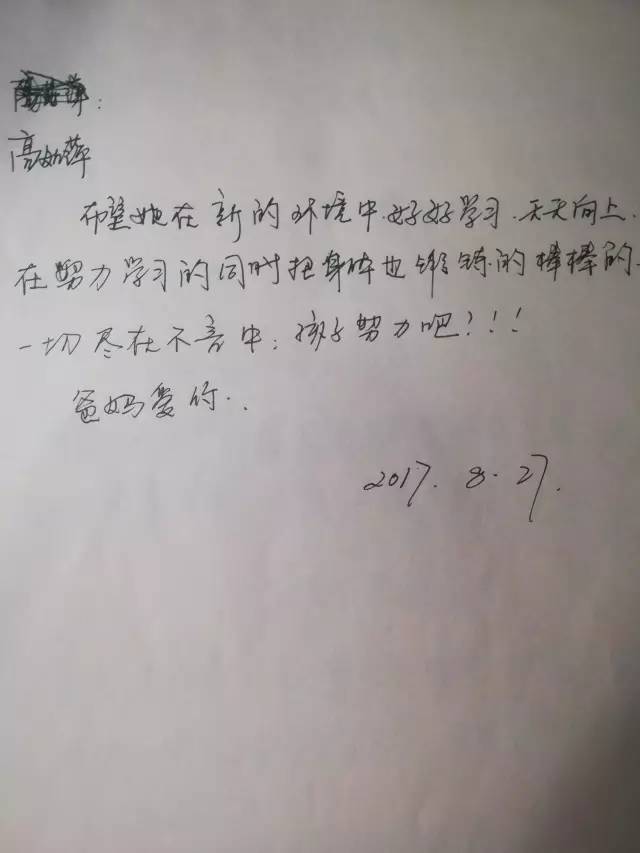 高如萍
希望她在新的环境中.好好学习.天天向上.
在努力学习的同时把身体也锻锛的棒棒的.
一切尽在不言中：孩子努力吧！！！
爸妈爱你..
2017.8.27.